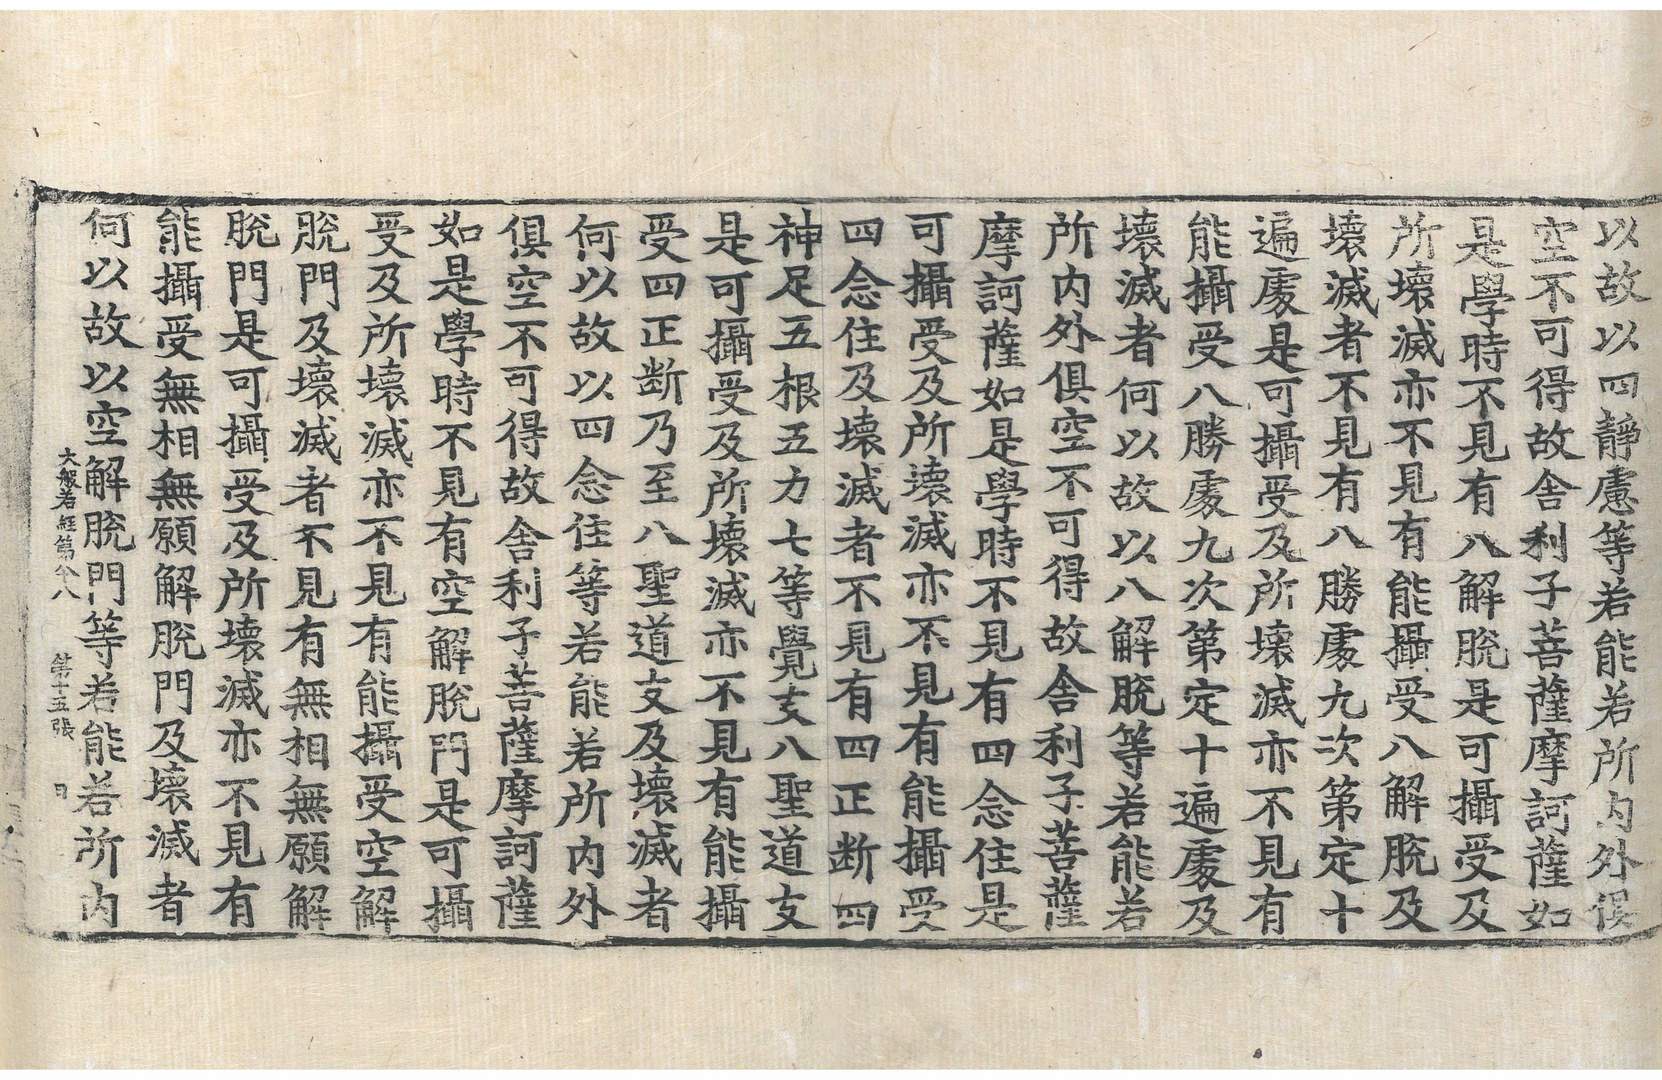 以故以四靜慮等若能若所內外俱
空不可得故舍利子菩薩摩訶薩如
是學時不見有八解脫是可攝受及
所壞滅亦不見有能攝受八解脫及
壞滅者不見有八勝處九次第定十
遍處是可攝受及所壞滅亦不見有
能攝受八勝處九次第定十遍處及
壞滅者何以故以八解脫等若能若
所內外俱空不可得故舍利子菩薩
摩訶薩如是學時不見有四念住是
可攝受及所壞滅亦不見有能攝受
四念住及壞滅者不見有四正斷四
神足五根五力七等覺支八聖道支
是可攝受及所壞滅亦不見有能攝
受四正斷乃至八聖道支及壞滅者
何以故以四念住等若能若所內外
俱空不可得故舍利子菩薩摩訶薩
如是學時不見有空解脫門是可攝
受及所壞滅亦不見有能攝受空解
脫門及壞滅者不見有無相無願解
脫門是可攝受及所壞滅亦不見有
能攝受無相無願解脫門及壞滅者
何以故以空解脫門等若能若所內
大般若經第八 第十五張